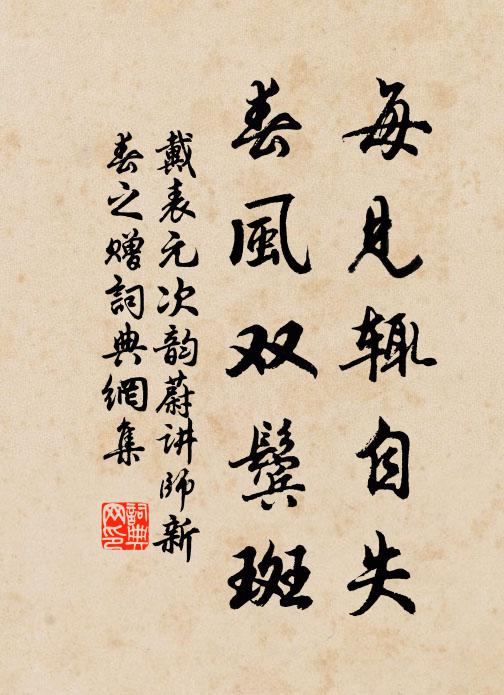 每見輒自失
春風双鬓斑
戴表元次韵蔚讲師新
春之赠詞典網集
詞典
网印